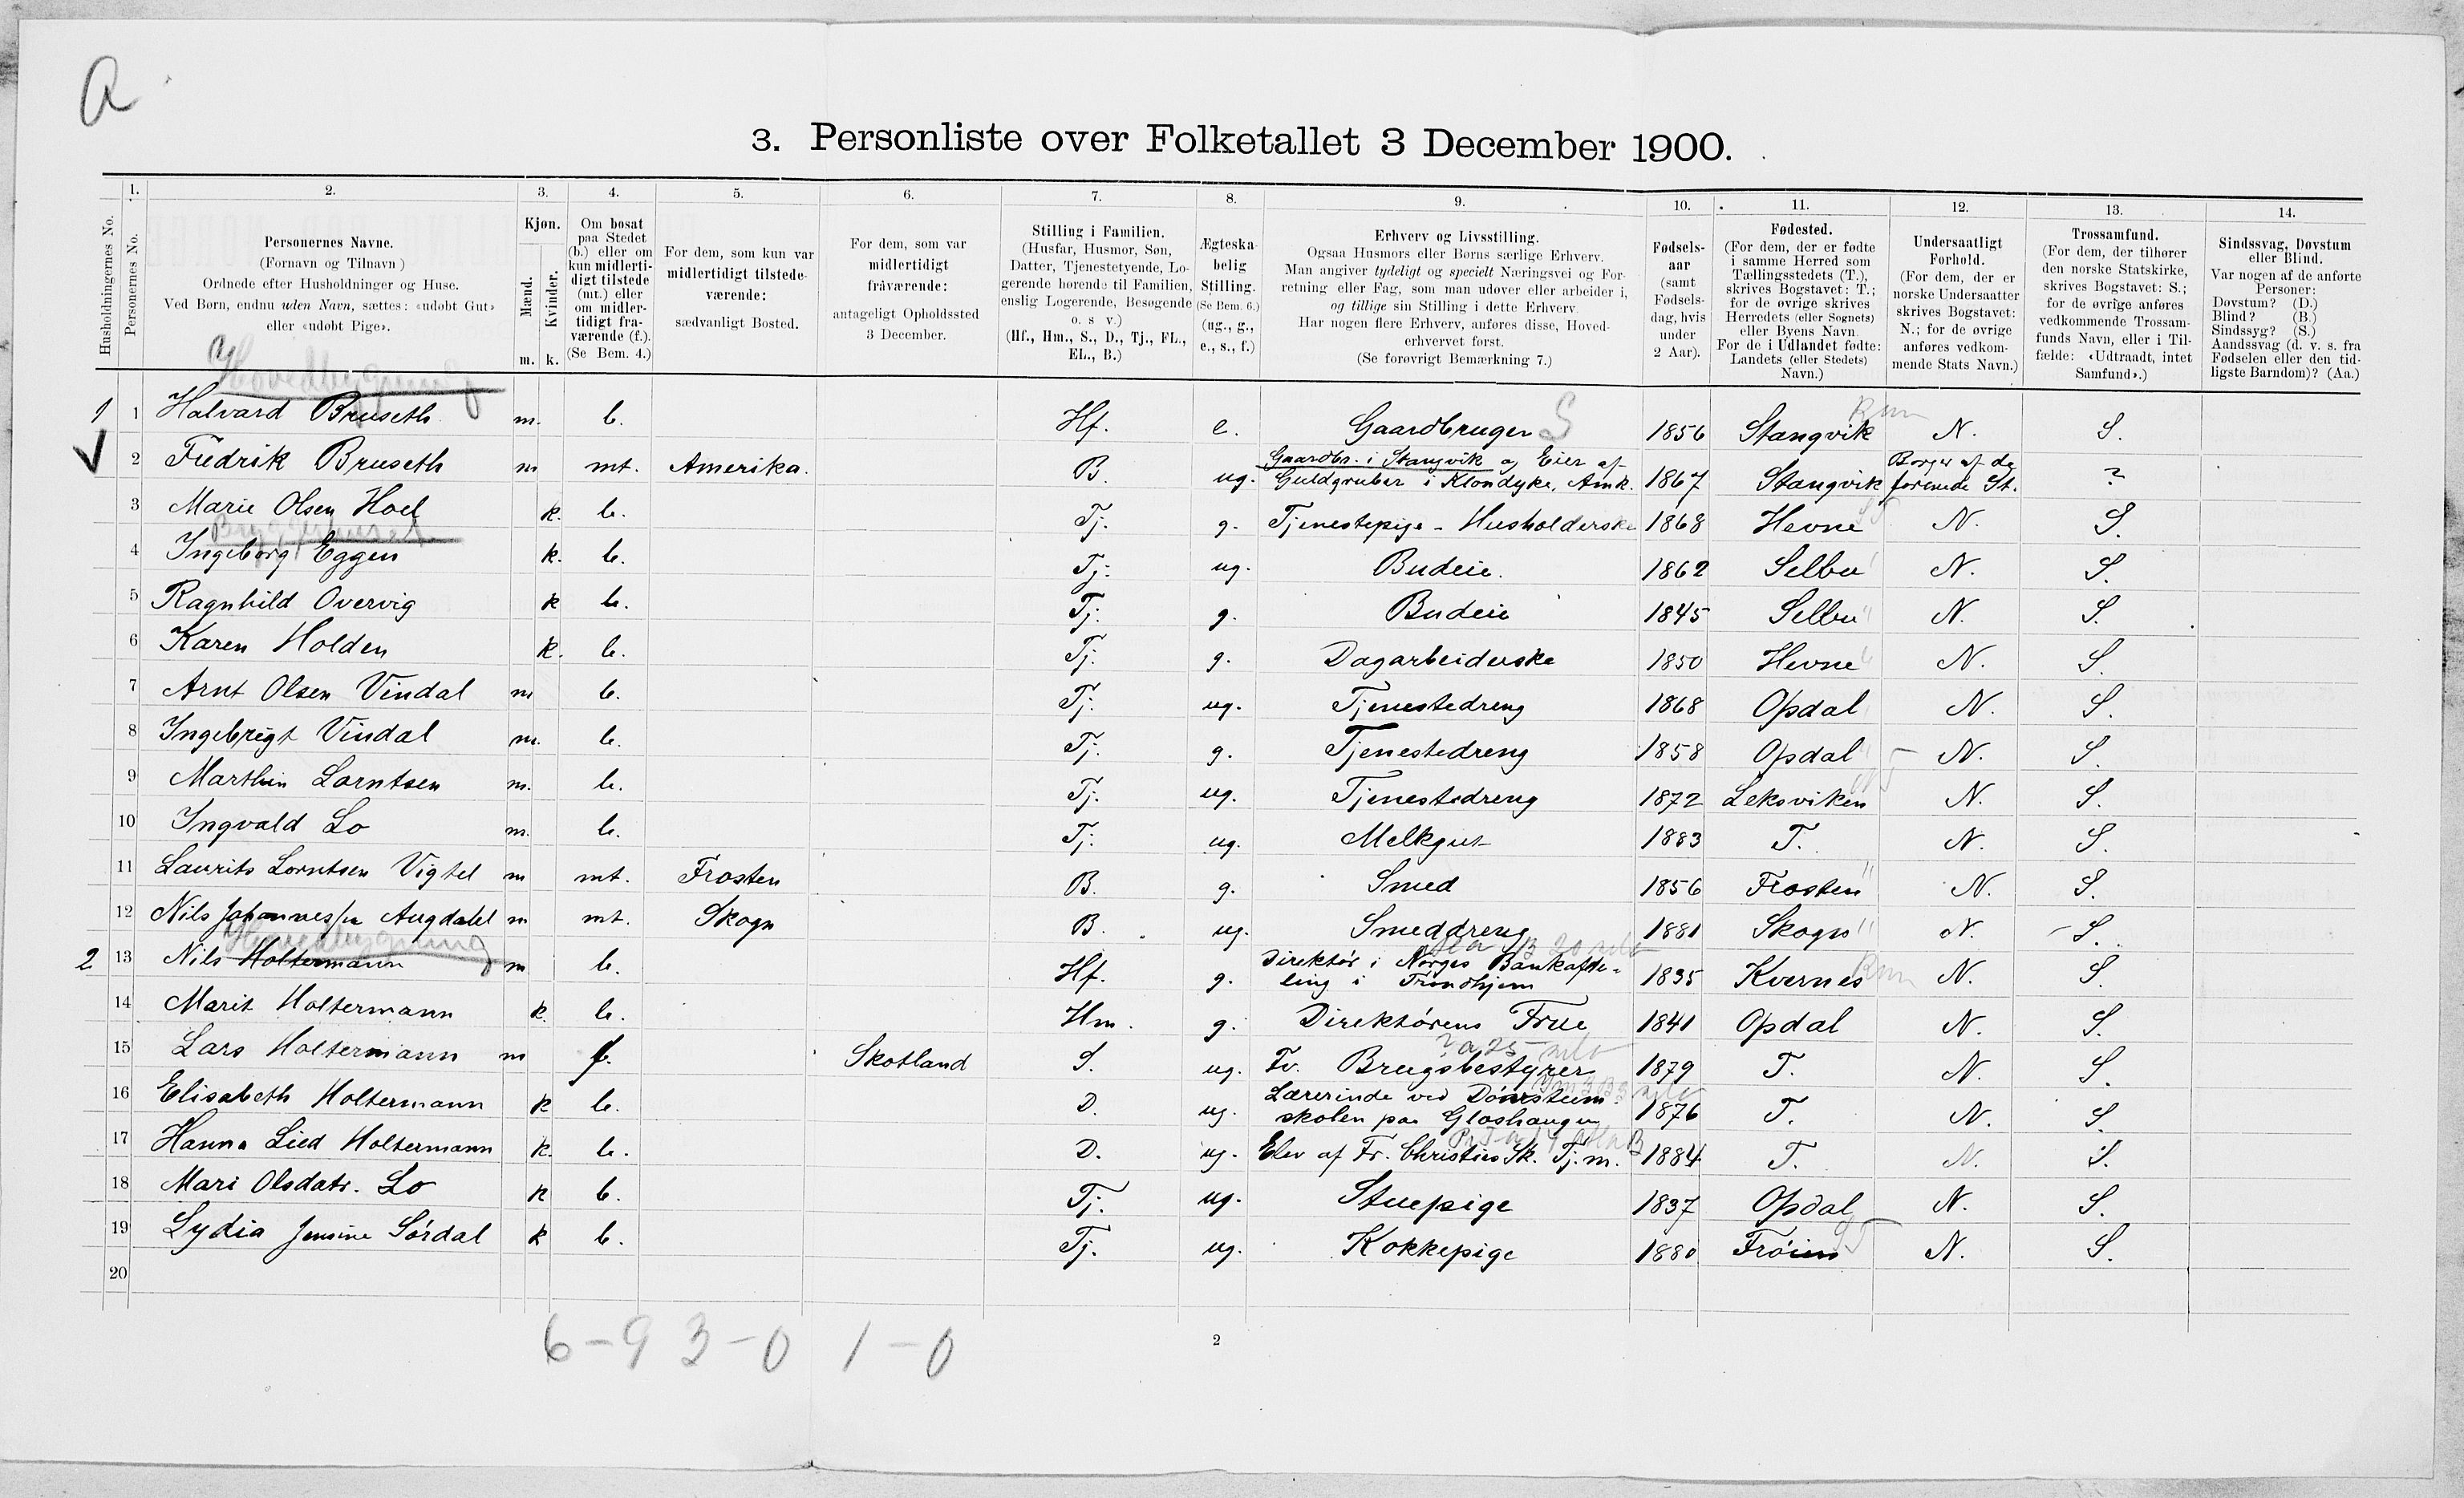 A
3. Personliste over Folketallet 3 December 1900.
Husholdningernes No.
1.
Personernes No.
2.
Personernes Navne.
(Fornavn og Tilnavn)
Ordnede efter Husholdninger og Huse.
Ved Børn, endnu uden Navn, sættes: «udøbt Gut»
eller «udøbt Pige».
3.
Kjøn.
Mænd.
Kvinder.
m. k.
4.
Om bosat
paa Stedet
(b.) eller om
kun midlerti-
digt tilstede
(mt.) eller
om midler-
tidigt fra-
værende (f.).
(Se Bem. 4.)
5.
For dem, som kun var
midlertidigt tilstede-
værende:
sædvanligt Bosted.
6.
For dem, som var
midlertidigt
fraværende:
antageligt Opholdssted
3 December.
7.
Stilling i Familien.
(Husfar, Husmor, Søn,
Datter, Tjenestetyende, Lo-
gerende hørende til Familien,
enslig Logerende, Besøgende
o. s. v.)
(Hf., Hm., S., D., Tj., FL.,
EL., B.)
8.
Ægteska-
belig
Stilling.
(Se Bem. 6.)
(ug., g.,
e., s., f.)
9.
Erhverv og Livsstilling.
Ogsaa Husmors eller Børns særlige Erhverv.
Man angiver tydeligt og specielt Næringsvei og For-
retning eller Fag, som man udøver eller arbeider i,
og tillige sin Stilling i dette Erhverv.
Har nogen flere Erhverv, anføres disse, Hoved-
erhvervet først.
(Se forøvrigt Bemærkning 7.)
10.
Fødsels-
aar
(samt
Fødsels-
dag, hvis
under
2 Aar).
11.
Fødested.
(For dem, der er fødte
i samme Herred som
Tællingsstedets (T.),
skrives Bogstavet: T.;
for de øvrige skrives
Herredets (eller Sognets)
eller Byens Navn.
For de i Udlandet fødte:
Landets (eller Stedets)
Navn.)
12.
Undersaatligt
Forhold.
(For dem, der er
norske Undersaatter
skrives Bogstavet:
N.; for de øvrige
anføres vedkom-
mende Stats Navn.)
13.
Trossamfund.
(For dem, der tilhører
den norske Statskirke,
skrives Bogstavet: S.;
for de øvrige anføres
vedkommende Trossam-
funds Navn, eller i Til-
fælde: «Udtraadt, intet
Samfund».)
14.
Sindssvag, Døvstum
eller Blind.
Var nogen af de anførte
Personer:
Døvstum? (D.)
Blind? (B.)
Sindssyg? (S.)
Aandssvag (d. v. s. fra
Fødselen eller den tid-
ligste Barndom)? (Aa.)
Hovedbygning
1 1 Halvard Bruseth m. b. Hf. e. Gaardbruger S 1856 Stangvik N. S.
2 Fredrik Bruseth m mt. Amerika. B. ug. Gaardbr. i Stangvik og Eier af
Guldgruber i Klondyke, Amk. 1867 Stangvik Borger af de
forenede St. ?
3 Marie Olsen Hoel k. b. Tj. g. Tjenestepige - Husholderske 1868 Hevne N. S.
4 Ingeborg Eggen k. b. Tj. ug. Budeie. 1862 Selbu N. S.
5 Ragnhild Overvig k b. Tj. g. Budeie 1845 Selbu N. S.
6 Karen Holden k. b. Tj. g. Dagarbeiderske 1850 Hevne N. S.
7 Arnt Olsen Vindal m b. Tj. ug. Tjenestedreng 1868 Opdal N. S.
8 Ingebrigt Vindal m. b. Tj. g. Tjenestedreng 1858 Opdal N. S.
9 Marthin Lorntsen m. b. Tj. ug. Tjenestedreng 1872 Leksviken N. S.
10 Ingvald Lo m. b. Tj. ug. Melkgut 1883 T. N. S.
11 Laurits Lorntsen Vigtel m mt. Frosten B. g. Smed 1856 Frosten N. S.
12 Nils Johannes/sn Augdahl m mt. Skogn B. ug. Smeddreng 1881 Skogn N. S.
Hovedbygning
2 13 Nils Holtermann m b. Hf. g. Direktør i Norges Bankafde-
ling i Trondhjem 1835 Kvernes N. S.
14 Marit Holtermann k. b. Hm. g. Direktørens Frue 1841 Opdal N. S.
15 Lars Holtermann m f. Skotland S. ug. Fv. Brugsbestyrer 1879 T. N. S.
16 Elisabeth Holtermann k b. D. ug. Lærerinde ved Døvstum-
skolen paa Gløshaugen 1876 T. N. S.
17 Hanna Lied Holtermann k. b. D. ug. Elev af Fr. Christies Sk. Tj.m. 1884 T. N. S.
18 Mari Olsdatr. Lo k b. Tj. ug. Stuepige 1837 Opdal N. S.
19 Lydia Jensine Sørdal k b. Tj. ug. Kokkepige 1880 Frøien N. S.
20
6-9 3-0 1-0
2